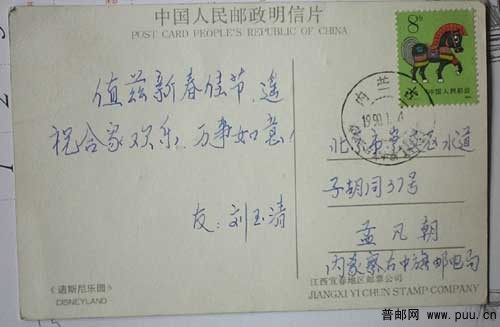 中国人民邮政明信片
POST CARD PEOPLE'S REPUBLIC OF CHINA
8分
中国人民邮政
1990.1.
值兹新春佳节,遥
祝合家欢乐,万事如意!
友:刘玉清
北京市 水道
子胡同37号
孟凡朝
内蒙察右中旗邮电局
《迪斯尼乐园》
DISNEYLAND
江西宜春地区邮票公司
JIANGXI YI CHUN STAMP COMPANY
普邮网 www.puu.cn